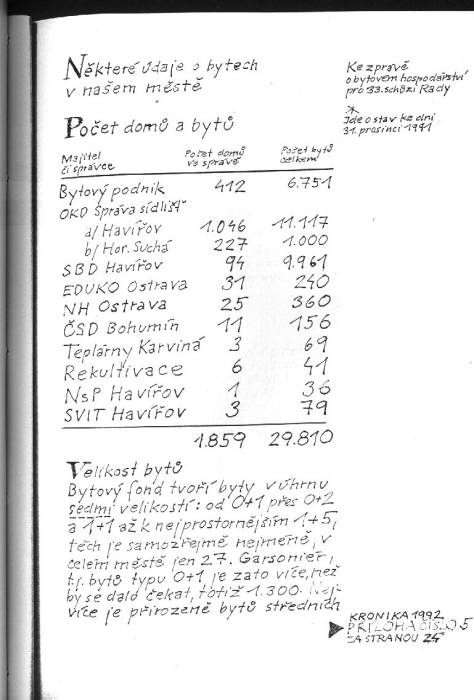 Některé údaje o bytech
v našem městě
Ke zprávě
o bytovém hospodářství
pro 33. schůzi Rady
*
Jde o stav ke dni
31. prosinci 1991
Počet domů a bytů
Majitel
či správce
Počet domů
ve správě
Počet bytů
celkem
Bytový podnik 412 6.751
OKD Správa sídlišť
a/ Havířov 1.046 11.117
b/ Hor. Suchá 227 1.000
SBD Havířov 94 9.961
EDUKO Ostrava 31 240
NH Ostrava 25 360
ČSD Bohumín 11 156
Teplárny Karviná 3 69
Rekultivace 6 41
NsP Havířov 1 36
SVIT Havířov 3 79
1.859 29.810
Velikost bytů
Bytový fond tvoří byty v úhrnu
sedmi velikostí: od 0+1 přes 0+2
a 1+1 až k nejprostornějším 1+5,
těch je samozřejmě nejméně, v
celém městě jen 27. Garsonier,
t.j. bytů typu 0+1 je zato více, než
by se dalo čekat, totiž 1.300. Nej-
více je přirozeně bytů středních
KRONIKA 1992
PŘÍLOHA ČÍSLO 5
ZA STRANOU 24